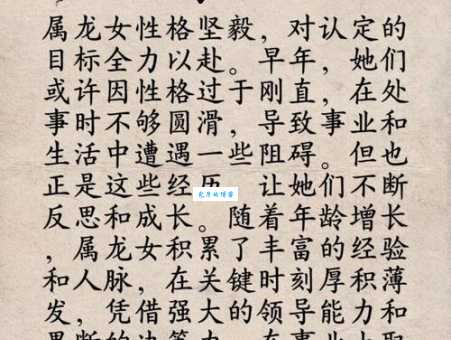 属龙女性格坚毅，对认定的
目标全力以赴。早年，她们
或许因性格过于刚直，在处
事时不够圆滑，导致事业和
生活中遭遇一些阻碍。但也
正是这些经历 让她们不断
反思和成长。随着年龄增长
，属龙女积累了丰富的经验
和人脉，在关键时刻厚积薄
发，凭借强大的领导能力和
果断的决策力 在事业上取